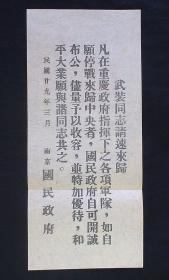 武裝同志請速來歸
凡在重慶政府指揮下之各項軍隊，如自
願停戰來歸中央者，國民政府自可開誠
布公，儘量予以收容，並特加優待，和
平大業願與諸同志共之。
民國廿九年三月　南京　國民政府